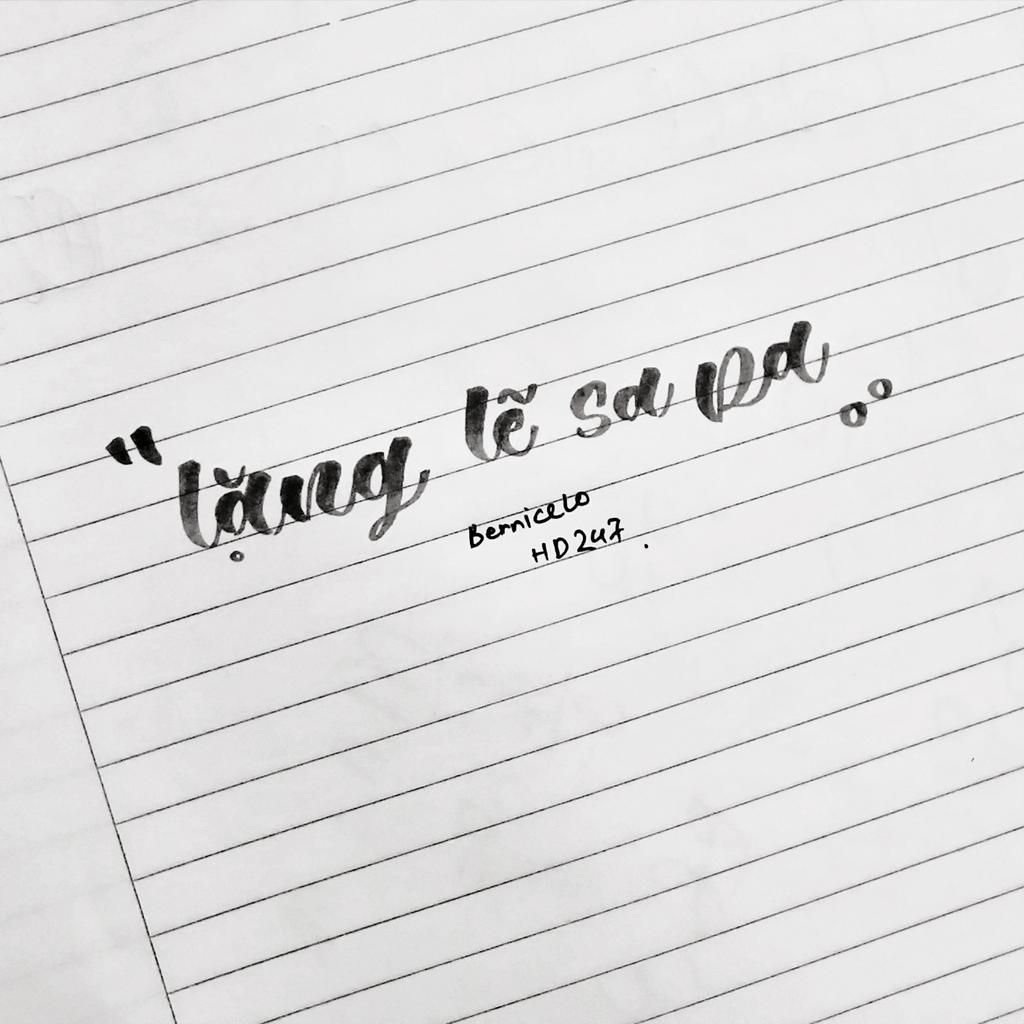 "lặng lẽ sa pa
Bernicelo
HD247.